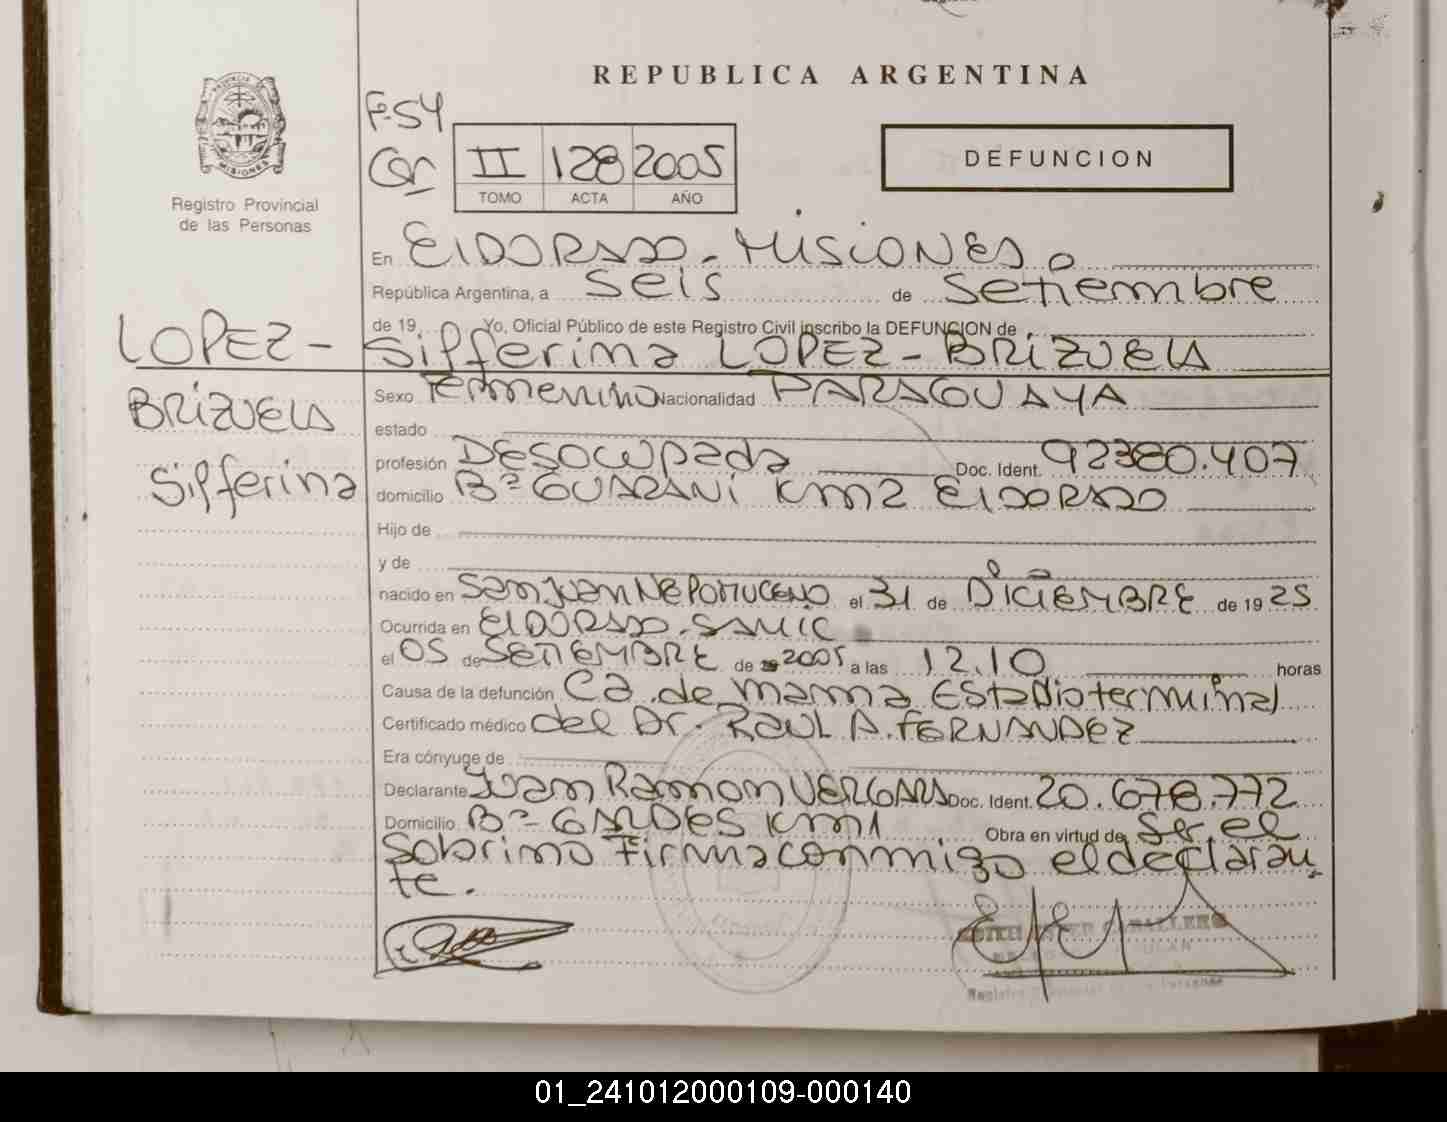 REPUBLICA ARGENTINA
F-54
II 128 2005
TOMO ACTA AÑO
DEFUNCION
MISIONES
Registro Provincial
de las Personas
En ElDORADO - MISIONES
República Argentina, a seis de setiembre
de 19 Yo, Oficial Público de este Registro Civil inscribo la DEFUNCION de
LOPEZ -
Sifferina LOPEZ - BRIZUELA
BRIZUELA
Sifferina
Sexo Femenino Nacionalidad PARAGUAYA
estado
profesión Desocupada Doc. Ident. 92380.407
domicilio Bº GUARANI Km 2 ElDORADO
Hijo de
y de
nacido en San Juan NEPOMUCENO el 31 de DiCiEMBRE de 19 25
Ocurrida en ElDORADO - SAMIC
el 05 de SETIEMBRE de 2005 a las 12.10 horas
Causa de la defunción Ca. de mama Estadio terminal
Certificado médico del Dr. RAUL A. FERNANDEZ
Era cónyuge de
Declarante Juan Ramon VERGARA Doc. Ident. 20.678.772
Domicilio Bº Km 1 Obra en virtud de Ser el
sobrino Firma conmigo el declaran
te.
CABALLERO
Registro
01_241012000109-000140